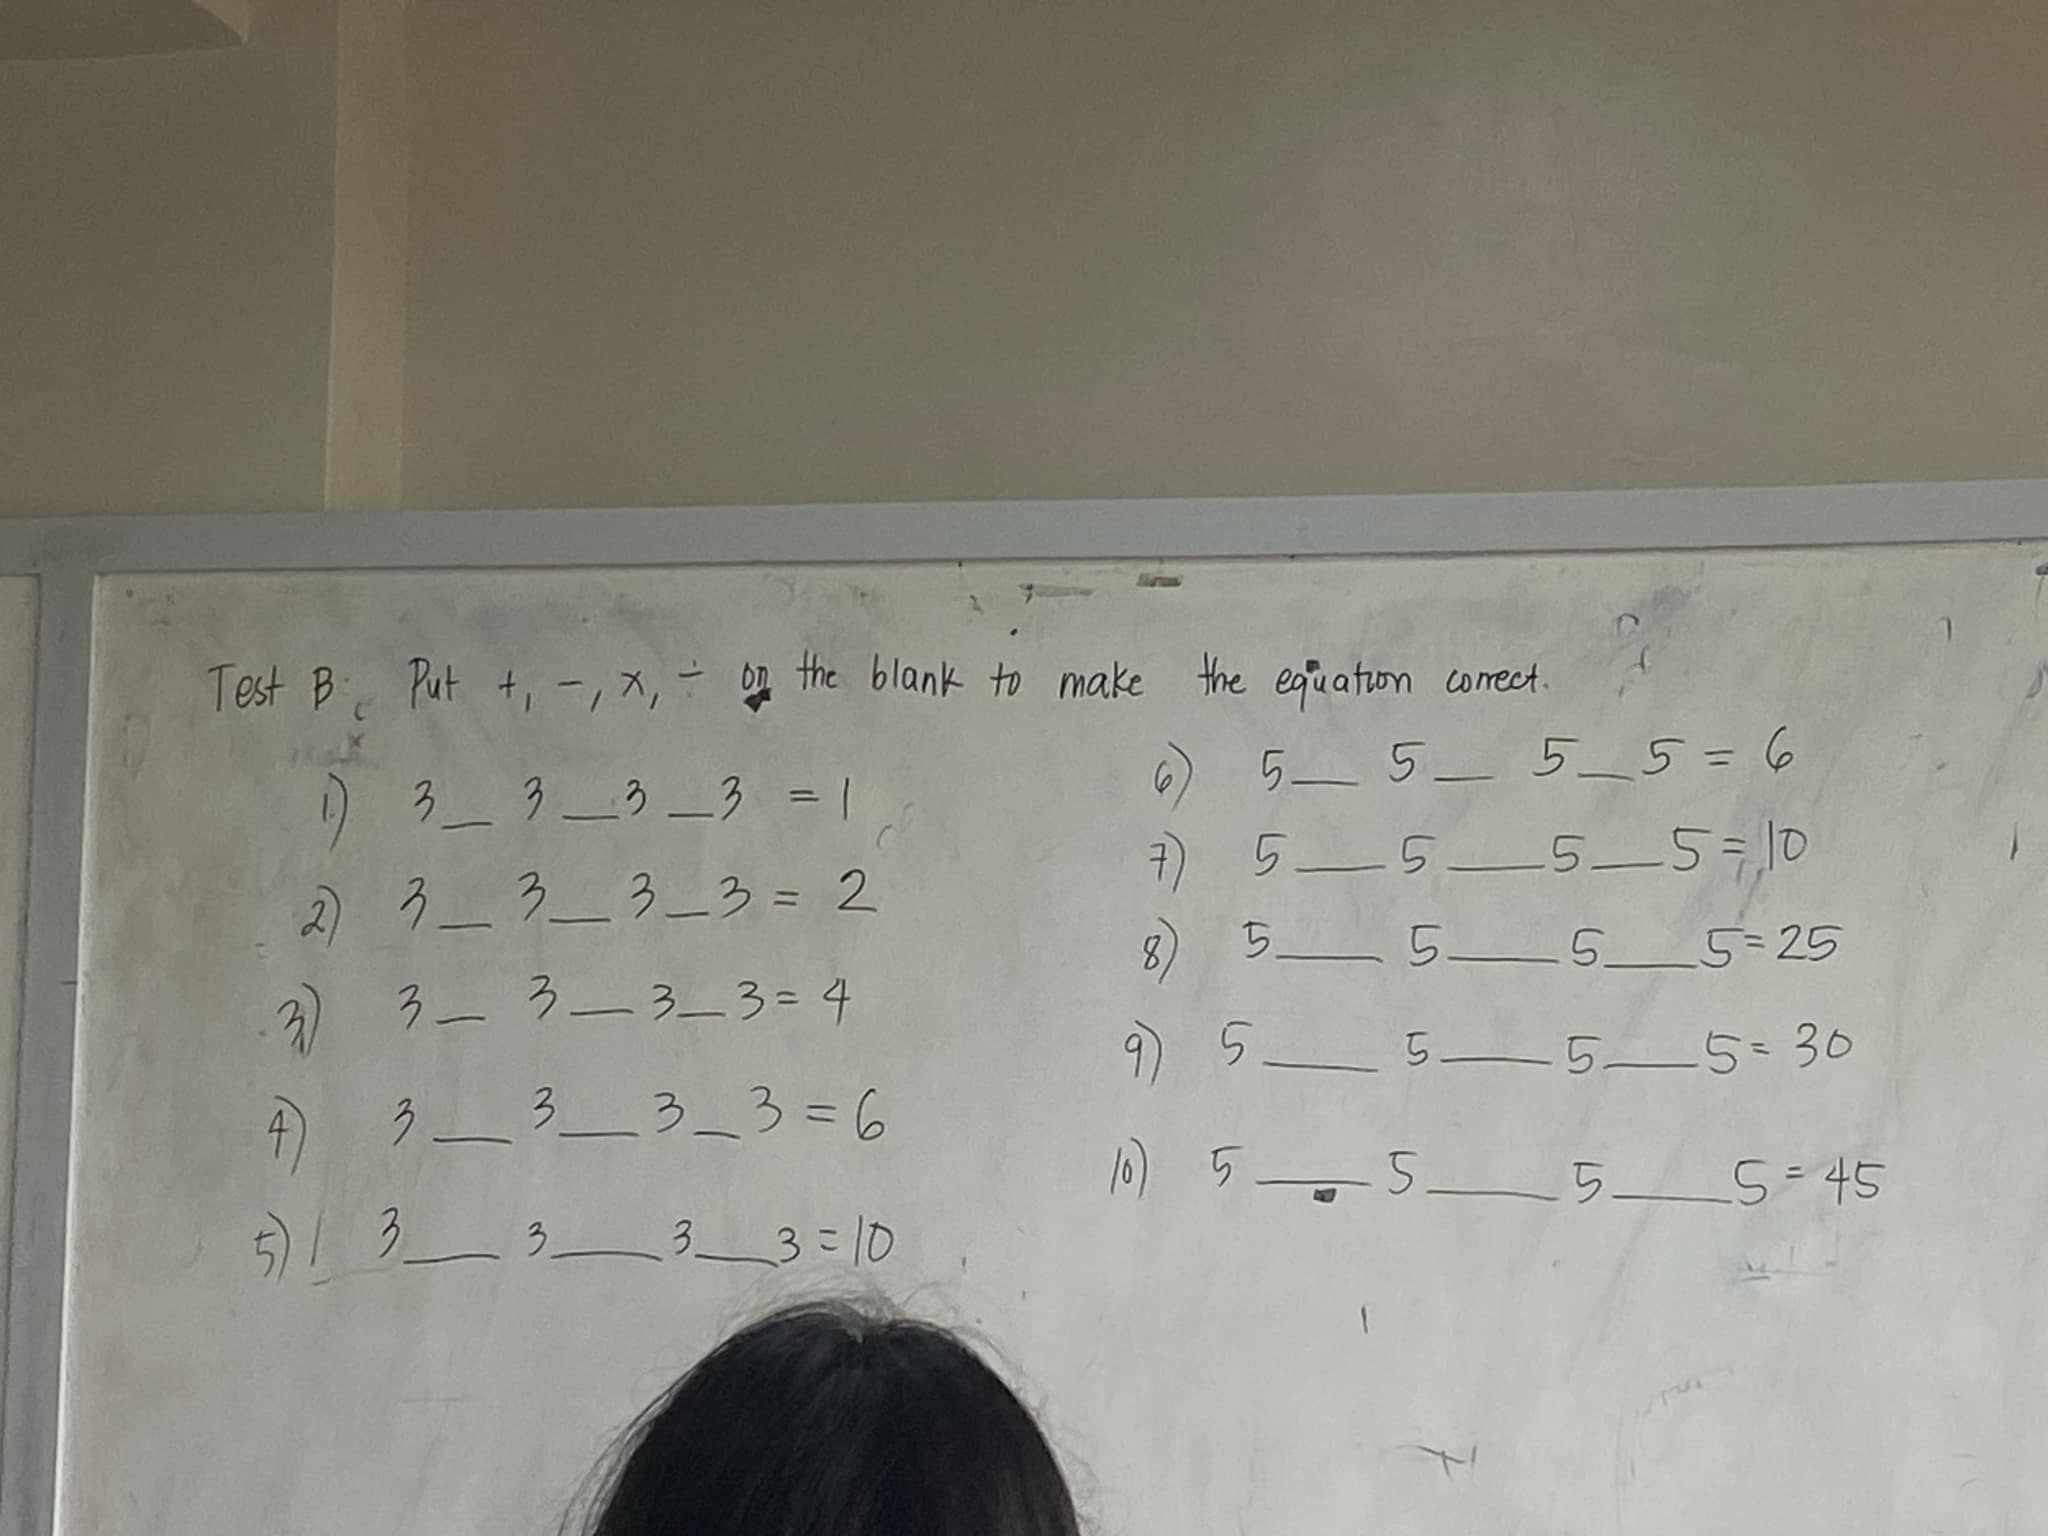 Test B: Put +, -, x, ÷ on the blank to make the equation correct.
1) 3__3__3__3 = 1
2) 3__3__3__3 = 2
3) 3__3__3__3 = 4
4) 3__3__3__3 = 6
5) 3__3__3__3 = 10
6) 5__5__5__5 = 6
7) 5__5__5__5 = 10
8) 5__5__5__5 = 25
9) 5__5__5__5 = 30
10) 5__5__5__5 = 45